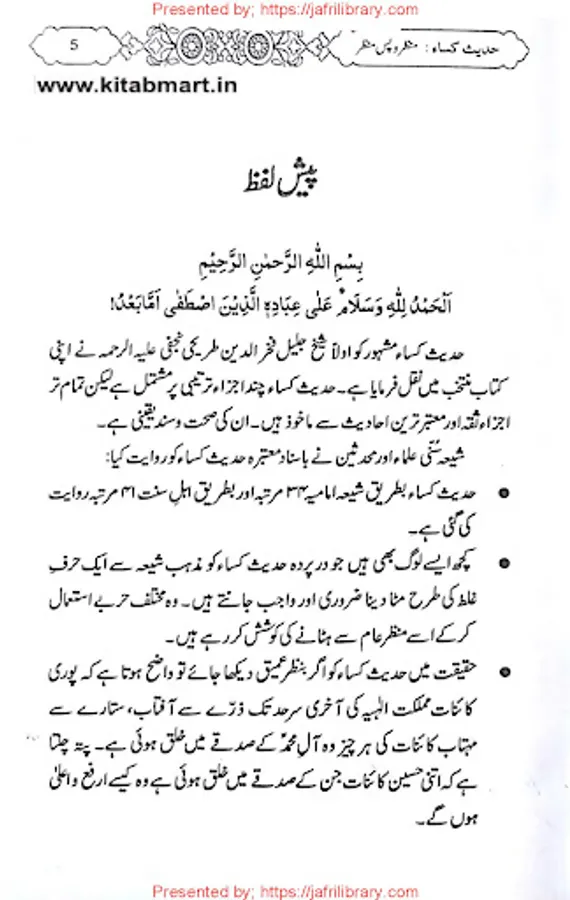 Presented by; https://jafrilibrary.com
5
حدیث کساء: منظر و پس منظر
www.kitabmart.in
پیش لفظ
بِسْمِ اللّٰہِ الرَّحْمٰنِ الرَّحِیْمِ
اَلْحَمْدُ لِلّٰہِ وَسَلَامٌ عَلٰی عِبَادِہِ الَّذِیْنَ اصْطَفٰی اَمَّابَعْدُ!
حدیث کساء مشہور کو اولاً شیخ جلیل فخر الدین طریحی نجفی علیہ الرحمہ نے اپنی
کتاب منتخب میں نقل فرمایا ہے۔ حدیث کساء چند اجزاء ترتیبی پر مشتمل ہے لیکن تمام تر
اجزاء ثقہ اور معتبر ترین احادیث سے ماخوذ ہیں۔ ان کی صحت و سند یقینی ہے۔
شیعہ سُنّی علماء اور محدثین نے باسناد معتبرہ حدیث کساء کو روایت کیا:
● حدیث کساء بطریق شیعہ امامیہ ۳۴ مرتبہ اور بطریق اہلِ سنت ۴۱ مرتبہ روایت
کی گئی ہے۔
● کچھ ایسے لوگ بھی ہیں جو در پردہ حدیث کساء کو مذہب شیعہ سے ایک حرفِ
غلط کی طرح مٹا دینا ضروری اور واجب جانتے ہیں۔ وہ مختلف حربے استعمال
کر کے اسے منظر عام سے ہٹانے کی کوشش کر رہے ہیں۔
● حقیقت میں حدیث کساء کو اگر بنظر عمیق دیکھا جائے تو واضح ہوتا ہے کہ پوری
کائنات مملکت الٰہیہ کی آخری سرحد تک ذرّے سے آفتاب، ستارے سے
مہتاب کائنات کی ہر چیز وہ آلِ محمدؐ کے صدقے میں خلق ہوئی ہے۔ پتہ چلتا
ہے کہ اتنی حسین کائنات جن کے صدقے میں خلق ہوئی ہے وہ کیسے ارفع و اعلیٰ
ہوں گے۔
Presented by; https://jafrilibrary.com